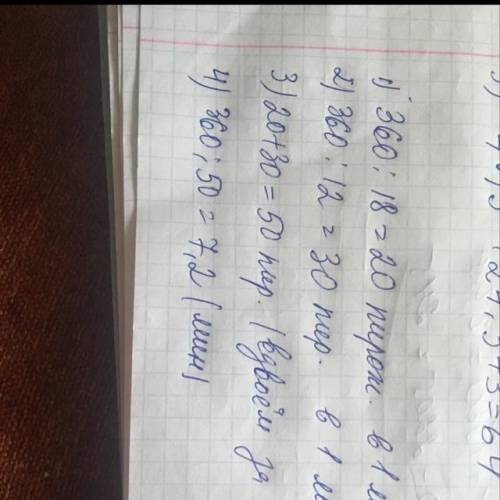 1) 360 : 18 = 20 пирож. в 1 м
2) 360 : 12 = 30 пир. в 1 м
3) 20 + 30 = 50 пир. (вдвоём за
4) 360 : 50 = 7,2 (мин)